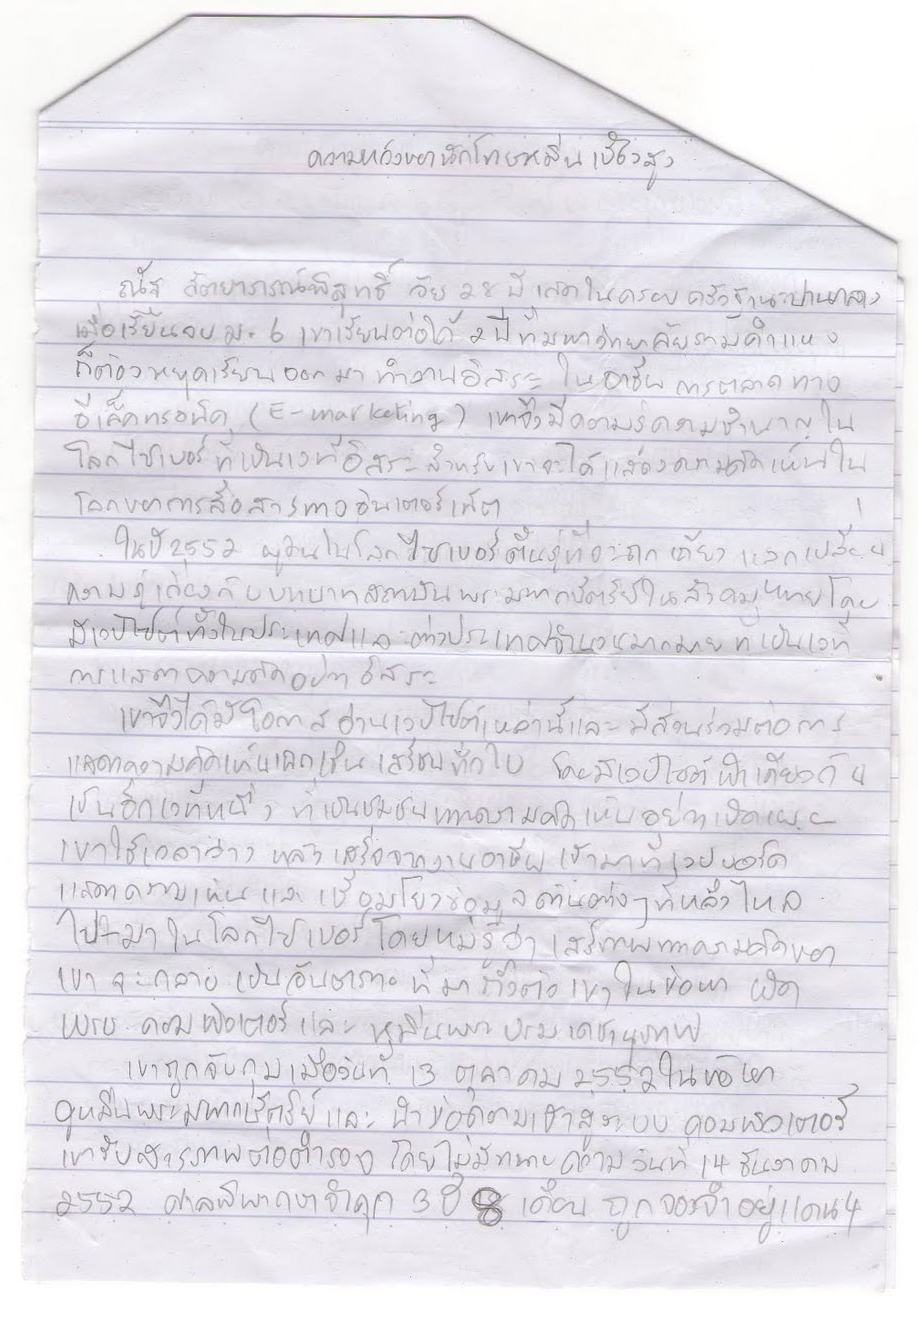 ความหวังของนักโทษหมิ่นเบื้องสูง
ณัฐ สัตยาภรณ์พิสุทธิ์ วัย 28 ปี เกิดในครอบครัวฐานะปานกลาง
เมื่อเรียนจบ ม. 6 เขาเรียนต่อได้ 2 ปี ที่มหาวิทยาลัยรามคำแหง
ก็ต้องหยุดเรียนออกมาทำงานอิสระ ในอาชีพ การตลาดทาง
อีเล็คทรอนิค (E-marketing) เขาจึงมีความรู้ความชำนาญใน
โลกไซเบอร์ ที่เป็นเวทีอิสระสำหรับเขาจะได้แสดงความคิดเห็นใน
โลกของการสื่อสารทางอินเตอร์เน็ต
ในปี 2552 ผู้คนในโลกไซเบอร์ตื่นรู้ที่จะถกเถียง แลกเปลี่ยน
ความรู้เกี่ยวกับบทบาทสถาบันพระมหากษัตริย์ในสังคมไทยโดย
มีเวปไซต์ทั้งในประเทศและต่างประเทศจำนวนมากมาย ที่เป็นเวที
การแสดงความคิดอย่างอิสระ
เขาจึงได้มีโอกาสอ่านเวปไซต์เหล่านี้และมีส่วนร่วมต่อการ
แสดงความคิดเห็นเฉกเช่น เสรีชนทั่วไป โดยมีเวปไซต์ฟ้าเดียวกัน
เป็นอีกเวทีหนึ่ง ที่เป็นชุมชนทางความคิดเห็นอย่างเปิดเผย
เขาใช้เวลาว่าง หลังเสร็จจากงานอาชีพ เข้ามาที่เวปบอร์ด
แสดงความเห็น และ เชื่อมโยงข้อมูลด้านต่างๆ ที่หลั่งไหล
ไปมา ในโลกไซเบอร์ โดยหมู่รู้ว่า เสรีภาพทางความคิดของ
เขา จะกลายเป็นอันตราย ที่มาถึงต่อเขาในข้อหา ผิด
พรบ. คอมพิวเตอร์ และ หมิ่นพระบรมเดชานุภาพ
เขาถูกจับกุมเมื่อวันที่ 13 ตุลาคม 2552 ในข้อหา
ดูหมิ่นพระมหากษัตริย์ และ นำข้อความเข้าสู่ระบบ คอมพิวเตอร์
เขารับสารภาพต่อตำรวจ โดยไม่มีทนายความ วันที่ 14 ธันวาคม
2552 ศาลพิพากษาจำคุก 3 ปี 8 เดือน ถูกจองจำอยู่แดน 4